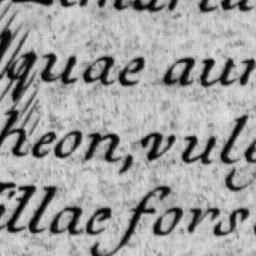 quae aur
heon, vulg
illae fors